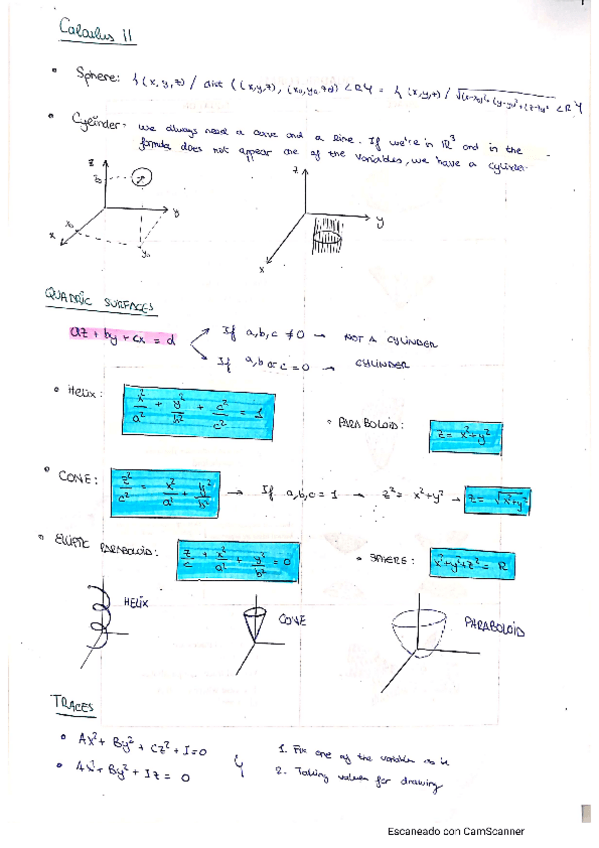 Calculus II
• Sphere: { (x,y,z) / dist ((x,y,z), (x₀,y₀,z₀)) < R } = { (x,y,z) / √(x-x₀)²+(y-y₀)²+(z-z₀)² < R }
• Cylinder: we always need a curve and a line. If we're in ℝ³ and in the
formula does not appear one of the variables, we have a cylinder.
z
z₀
x₀
x
y
y₀
z
y
x
QUADRIC SURFACES
az + by + cx = d
If a,b,c ≠ 0 → NOT A CYLINDER
If a,b or c = 0 → CYLINDER
• Helix: x²/a² + y²/b² + c²/c² = 1
• PARABOLOID: z = x²+y²
• CONE: z²/c² = x²/a² + y²/b² → If a,b,c = 1 → z² = x²+y² → z = √x²+y²
• ELLIPTIC PARABOLOID: z/c + x²/a² + y²/b² = 0
• SPHERE: x²+y²+z² = R
HELIX
CONE
PARABOLOID
TRACES
• Ax² + By² + Cz² + I = 0
• Ax² + By² + Iz = 0
1. Fix one of the variables
2. Taking values for drawing
Escaneado con CamScanner